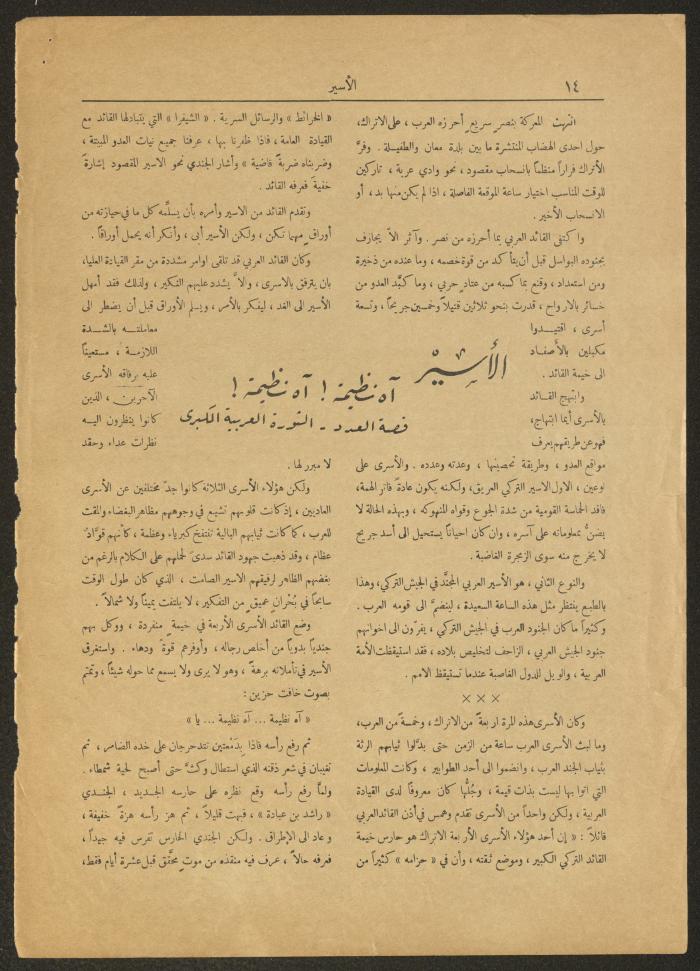 ١٤
الأسير
انتهت المعركة بنصرٍ سريعٍ أحرزه العرب ، على الاتراك،
حول احدى الهضاب المنتشرة ما بين بلدة معان والطفيلة . وفرَّ
الأتراك فراراً منظماً بانسحاب مقصود، نحو وادي عربة ، تاركين
للوقت المناسب اختيار ساعة الموقعة الفاصلة ، اذا لم يكن منها بد ، أو
الانسحاب الأخير .
واكتفى القائد العربي بما أحرزه من نصر . وآثر الاّ يجازف
بجنوده البواسل قبل أن يتأكد من قوة خصمه ، وما عنده من ذخيرة
ومن استعداد ، وقنع بما كسبه من عتاد حربي ، وما كبَّد العدو من
خسائر بالارواح ، قدرت بنحو ثلاثين قتيلاً وخمسين جريحاً ، وتسعة
أسرى ، اقتيدوا
مكبلين بالأصفاد
الى خيمة القائد .
وابتهج القائد
بالأسرى أيما ابتهاج،
فهو عن طريقهم يعرف
مواقع العدو ، وطريقة تحصينها ، وعدته وعدده . والأسرى على
نوعين ، الاول الاسير التركي العريق، ولكنه يكون عادةً فاتر الهمة،
فاقد الحماسة القومية من شدة الجوع وقواه المنهوكة ، وبهذه الحالة لا
يضنُّ بمعلوماته على آسره ، وان كان احياناً يستحيل الى أسد جريح
لا يخرج منه سوى الزمجرة الغاضبة .
والنوع الثاني ، هو الأسير العربي المجنَّد في الجيش التركي، وهذا
بالطبع ينتظر مثل هذه الساعة السعيدة ، لينضمَّ الى قومه العرب .
وكثيراً ما كان الجنود العرب في الجيش التركي ، يفرّون الى اخوانهم
جنود الجيش العربي ، الزاحف لتخليص بلاده ، فقد استيقظت الأمة
العربية ، والويل للدول الغاصبة عندما تستيقظ الامم .
× × ×
وكان الأسرى هذه المرة اربعةً من الاتراك ، وخمسةً من العرب،
وما لبث الأسرى العرب ساعة من الزمن حتى بدَّلوا ثيابهم الرثة
بثياب الجند العرب ، وانضموا الى أحد الطوابير ، وكانت المعلومات
التي اتوا بها ليست بذات قيمة ، وجُلُّها كان معروفاً لدى القيادة
العربية ، ولكن واحداً من الأسرى تقدم وهمس في أذن القائد العربي
قائلاً : « إن أحد هؤلاء الأسرى الأربعة الاتراك هو حارس خيمة
القائد التركي الكبير ، وموضع ثقته ، وأن في « حزامه » كثيراً من
الأسير
آه نظيمة ! آه نظيمة !
قصة العدد - الثورة العربية الكبرى
« الخرائط » والرسائل السرية . « الشيفرا » التي يتبادلها القائد مع
القيادة العامة ، فاذا ظفرنا بها ، عرفنا جميع نيات العدو المبيتة ،
وضربناه ضربةً قاضية » وأشار الجندي نحو الاسير المقصود إشارة
خفيةً فعرفه القائد .
وتقدم القائد من الاسير وأمره بأن يسلِّمه كل ما في حيازته من
أوراق مهما تكن ، ولكن الأسير أبى ، وأنكر أنه يحمل أوراقاً .
وكان القائد العربي قد تلقى اوامر مشددة من مقر القيادة العليا،
بان يترفق بالاسرى ، والاَّ يشدد عليهم النكير ، ولذلك فقد أمهل
الأسير الى الغد ، ليفكر بالأمر ، ويسلم الأوراق قبل أن يضطر الى
معاملته بالشدة
اللازمة ، مستعيناً
عليه برفاقه الأسرى
الآخرين ، الذين
كانوا ينظرون اليه
نظرات عداء وحقد
لا مبرر لها .
ولكن هؤلاء الأسرى الثلاثة كانوا جدَّ مختلفين عن الأسرى
العاديين ، إذ كانت قلوبهم تشيع في وجوههم مظاهر البغضاء والمقت
للعرب ، كما كانت ثيابهم البالية تنتفخ كبرياء وعظمة ، كأنهم قوّادٌ
عظام ، وقد ذهبت جهود القائد سدىً لحملهم على الكلام بالرغم من
بغضهم الظاهر لرفيقهم الاسير الصامت ، الذي كان طول الوقت
سابحاً في بُحْرانٍ عميقٍ من التفكير ، لا يلتفت يميناً ولا شمالاً .
وضع القائد الأسرى الأربعة في خيمةٍ منفردة ، ووكل بهم
جندياً بدوياً من أخلص رجاله ، وأوفرهم قوةً ودهاء . واستغرق
الأسير في تأملاته برهةً ، وهو لا يرى ولا يسمع مما حوله شيئاً ، وتمتم
بصوت خافت حزين :
« آه نظيمة ... آه نظيمة ... يا »
ثم رفع رأسه فاذا بدَمْعتين تتدحرجان على خده الضامر ، ثم
تغيبان في شعر ذقنه الذي استطال وكثَّ حتى أصبح لحية شمطاء .
ولمَّا رفع رأسه وقع نظره على حارسه الجديد ، الجندي
« راشد بن عبادة » ، فبهت قليلاً ، ثم هز رأسه هزةً خفيفة ،
وعاد الى الإطراق . ولكن الجندي الحارس تفرس فيه جيداً ،
فعرفه حالاً ، عرف فيه منقذه من موتٍ محقَّق قبل عشرة أيام فقط،